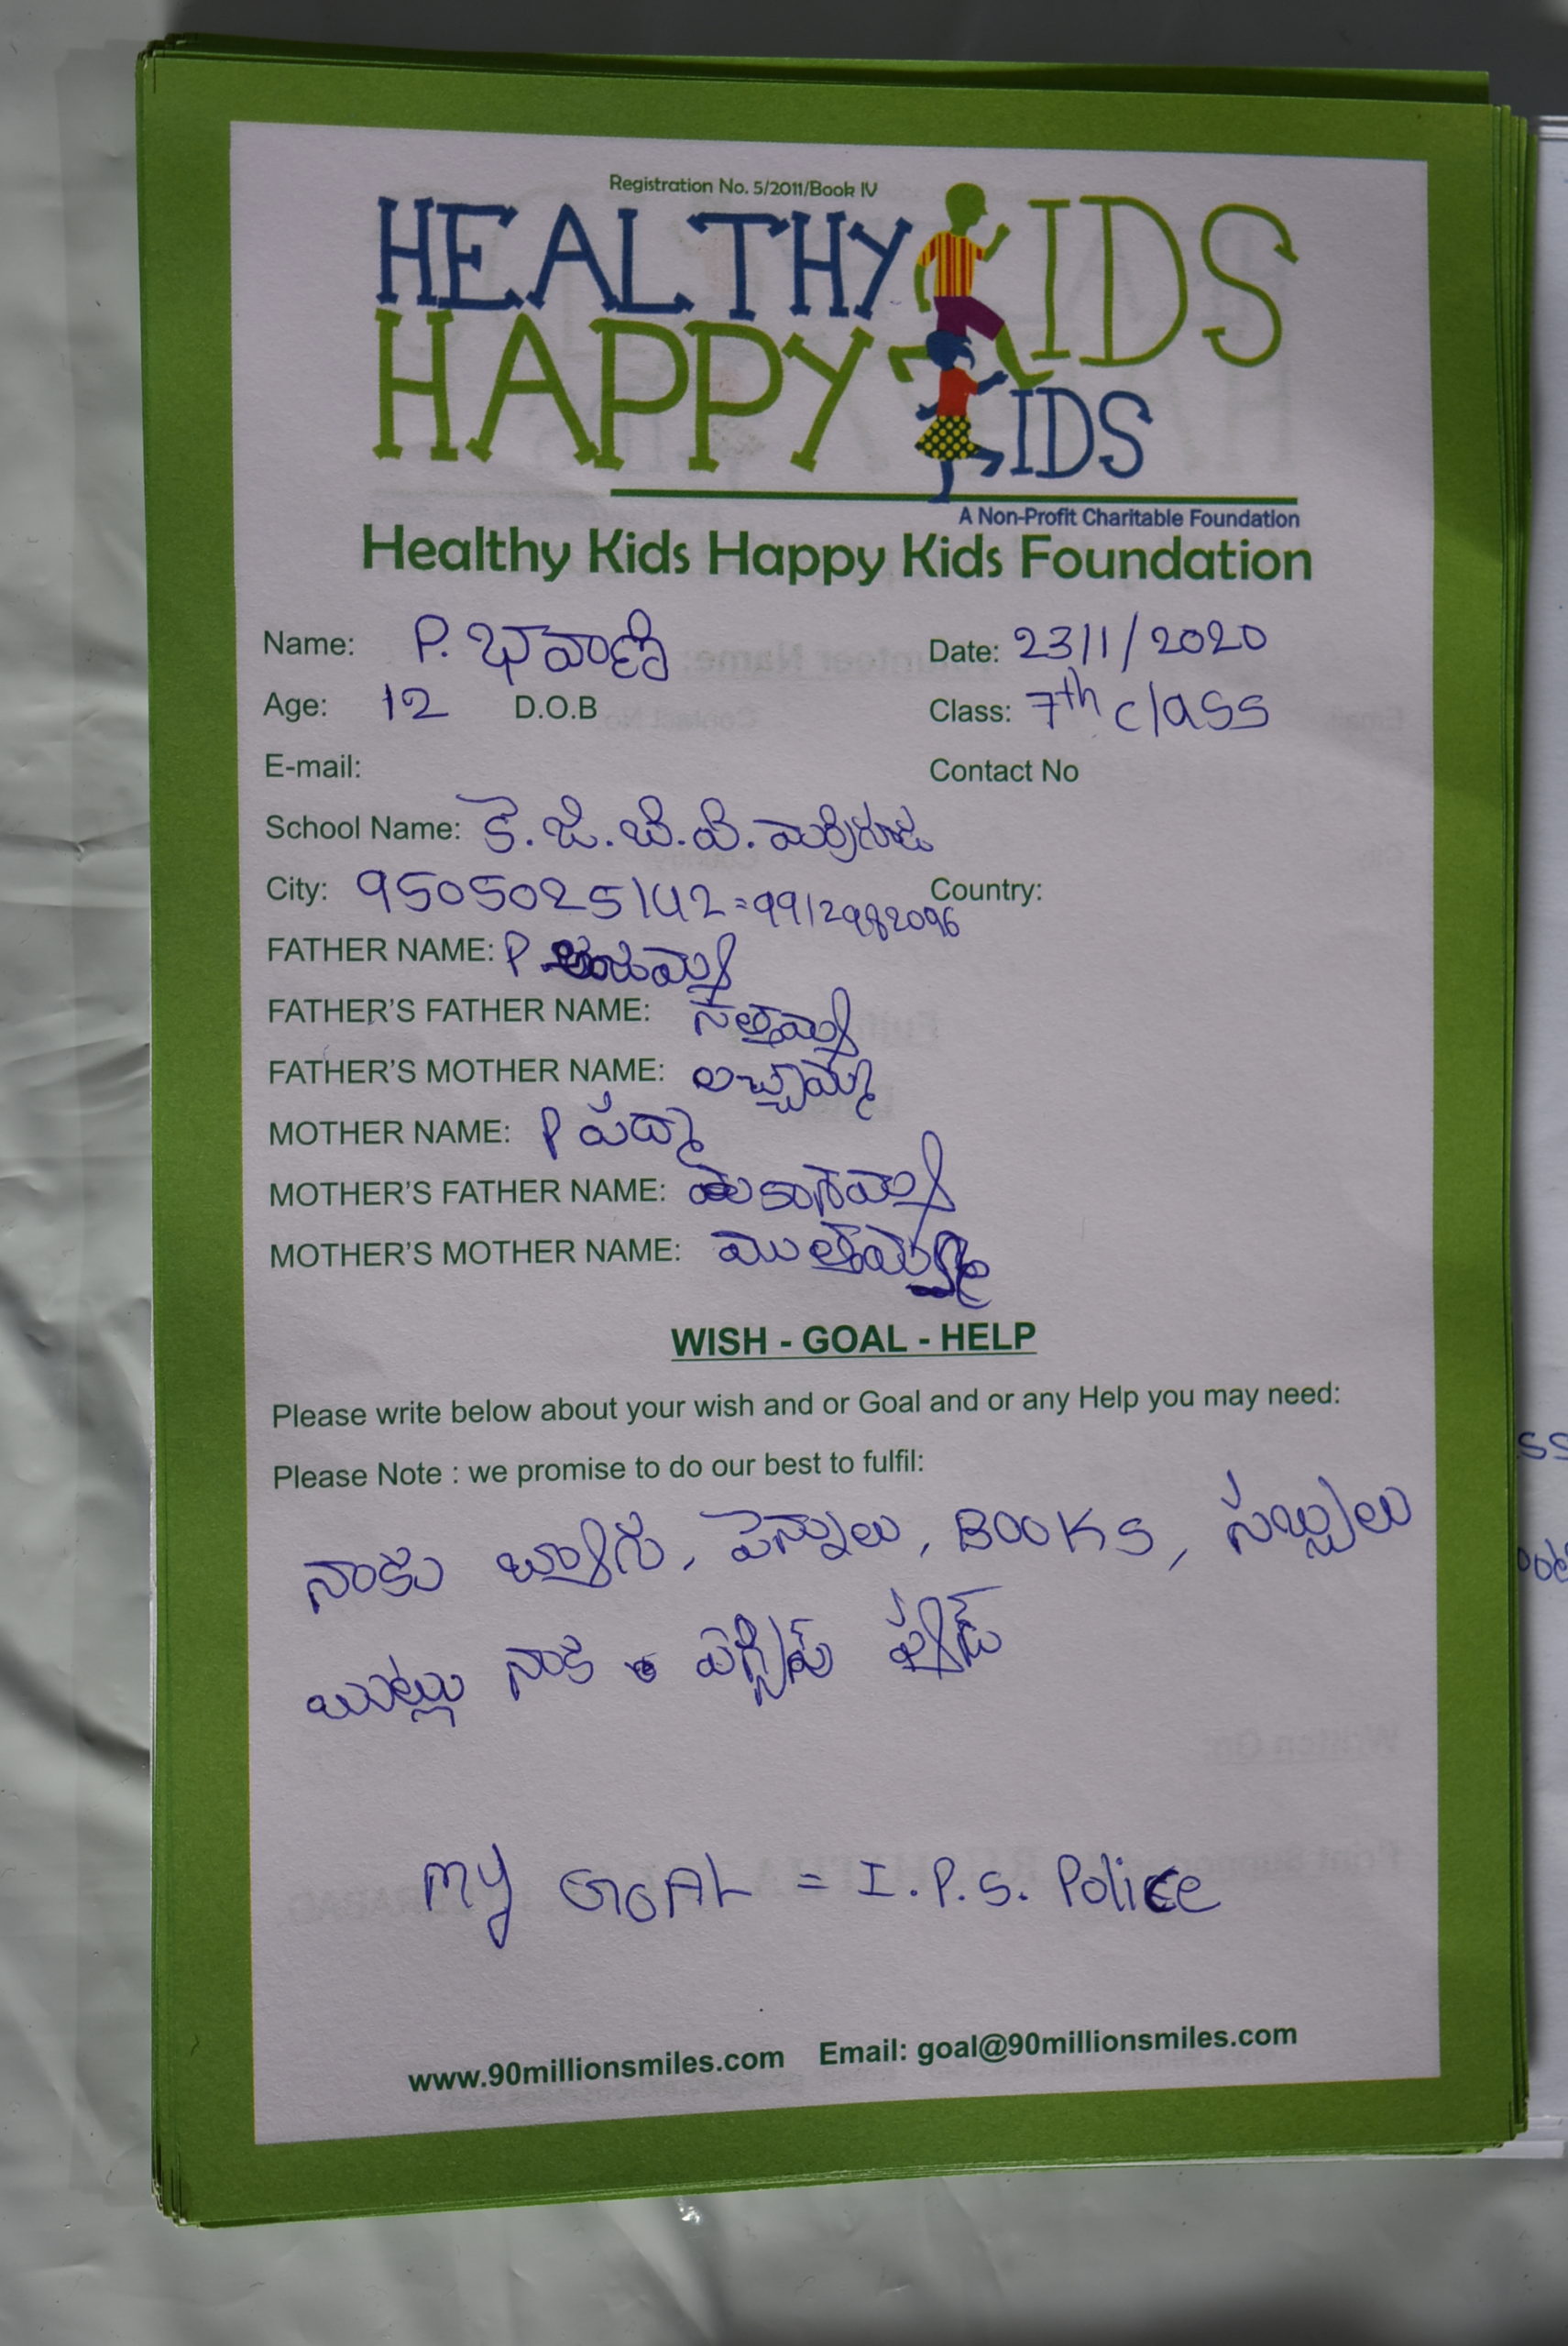 Registration No. 5/2011/Book IV
HEALTHY KIDS
HAPPY KIDS
A Non-Profit Charitable Foundation
Healthy Kids Happy Kids Foundation
Name: P. భవాణి Date: 23/1/2020
Age: 12 D.O.B Class: 7th class
E-mail: Contact No
School Name: కె.జి.బి.వి. మర్రిగూడ
City: 9505025142=9912982096 Country:
FATHER NAME: P
FATHER'S FATHER NAME: సత్తయ్య
FATHER'S MOTHER NAME: లచ్చమ్మ
MOTHER NAME: P పద్మ
MOTHER'S FATHER NAME:
MOTHER'S MOTHER NAME:
WISH - GOAL - HELP
Please write below about your wish and or Goal and or any Help you may need:
Please Note : we promise to do our best to fulfil:
నాకు బ్యాగు, పెన్నులు, BOOKS, సబ్బులు
నాక ప్యాడ్
MY GOAL = I.P.S. Police
www.90millionsmiles.com Email: goal@90millionsmiles.com